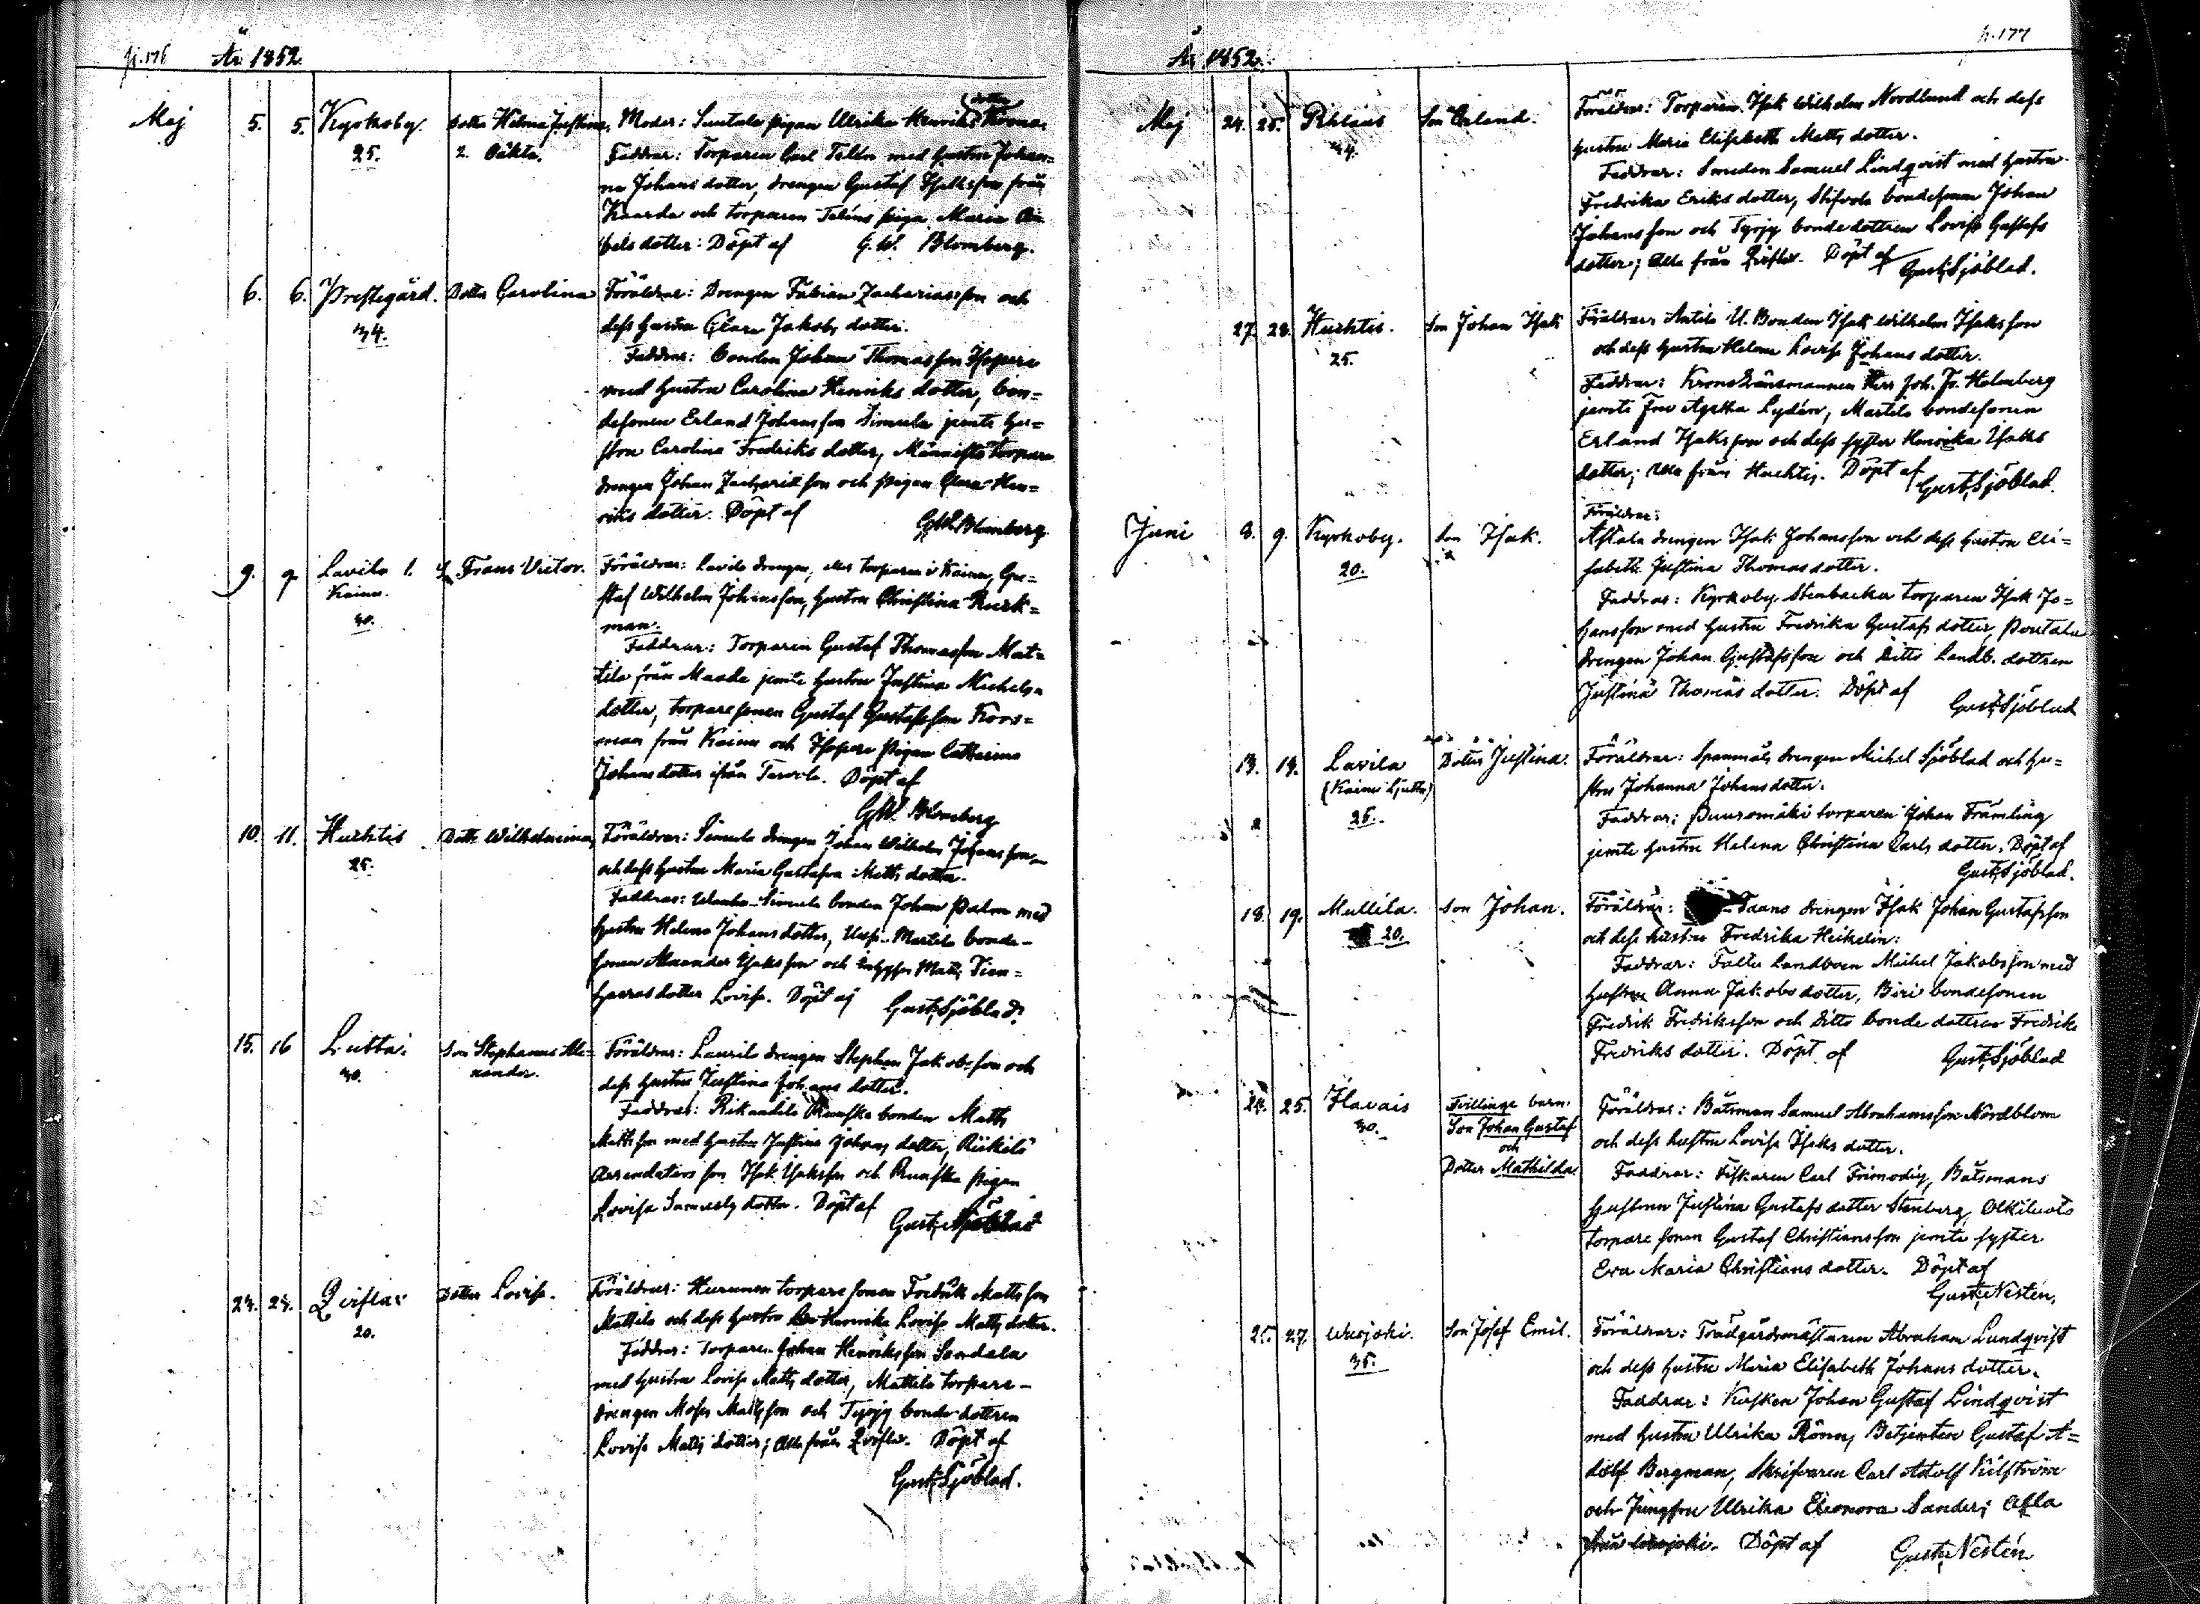 p. 176 År 1852.
Maj 5. 5. Kyrkoby. Dotter Helena Justina, Moder: Suutala pigan Ulrika Henriks dotter
25. 2. Oäkta. Faddrar: Torparen Carl Telén med hustru Johan-
na Johans dotter, drengen Gustaf Isaksson från
Kaarda och torparen Teléns piga Maria
dotter: Döpt af G. W. Blomberg.
6. 6. Prestegård. Dotter Carolina Föräldrar: Drengen Fabian Zachariasson och
34. dess hustru Clara Jakobs dotter.
Faddrar: Bonden Johan Thomasson Isopere
med hustru Carolina Henriks dotter, bon-
desonen Erland Johansson Simula jemte hu-
stru Carolina Fredriks dotter, Männistö torpare
drengen Johan Zachariasson och pigan Clara Hen-
riks dotter. Döpt af G. W. Blomberg
9. 9. Lavila 1. S. Frans Victor. Föräldrar: Lavila drengen, eller torparen i Kainu, Gu-
Kainu. staf Wilhelm Johansson, hustru Christina Rusk-
30. man.
Faddrar: Torparen Gustaf Thomasson Mat-
tila från Maade jemte hustru Justina Michels-
dotter, torparesonen Gustaf Gustafsson Kors-
man från Kainu och Isopere pigan Catharina
Johans dotter ifrån Tarvola. Döpt af
G. W. Blomberg
10. 11. Huhtis Dotter Wilhelmina, Föräldrar: Simula drengen Johan Wilhelm Johansson,
25. och dess hustru Maria Gustafva Matts dotter.
Faddrar: Simula bonden Johan Palm med
hustru Helena Johans dotter, Martila bonde-
sonen Alexander Isaksson och Matts
dotter Lovisa. Döpt af Gust. Sjöblad.
15. 16 Lutta. Son Stephanus Ale- Föräldrar: Laurila drengen Stephan Jakobsson och
30. xander. dess hustru Justina Johans dotter.
Faddrar: Rikantila bonden Matts
Mattsson med hustru Justina Johans dotter, Riikilä
Arrendators son Isak Isaksson och pigan
Lovisa Samuels dotter. Döpt af
Gust. Sjöblad
24. 24. Qvistlax Dotter Lovisa. Föräldrar: torparesonen Fredrik Mattsson
20. Mattila och dess hustru Henrika Lovisa Matts dotter.
Faddrar: Torparen Johan Henriksson Sandala
med hustru Lovisa Matts dotter, Mattila torpare-
drengen Moses Mattsson och Tyrjy bonde dottren
Lovisa Matts dotter; Alla från Qvistlax. Döpt af
Gust. Sjöblad.
p. 177
År 1852.
Maj 24. 25. Pihlaus Son Erland. Föräldrar: Torparen Isak Wilhelm Nordlund och dess
34. hustru Maria Elisabeth Matts dotter.
Faddrar: Smeden Samuel Lindqvist med hustru
Fredrika Eriks dotter, Stifvola bondesonen Johan
Johansson och Tyrjy bondedottren Lovisa Gustafs
dotter; Alla från Qvistlax. Döpt af Gust. Sjöblad.
27. 28. Huhtis. Son Johan Isak Föräldrar: Antila U. Bonden Isak Wilhelm Isaksson
25. och dess hustru Helena Lovisa Johans dotter.
Faddrar: Kronolänsmannen Herr Joh. Fr. Holmberg
jemte Fru Agatha Lydén, Martila bondesonen
Erland Isaksson och dess syster Henrika Isaks
dotter; Alla från Huhtis. Döpt af Gust. Sjöblad.
Juni 8. 9. Kyrkoby. Son Isak. Föräldrar:
20. Astala drengen Isak Johansson och dess hustru Eli-
sabeth Justina Thomasdotter.
Faddrar: Kyrkoby Stenbacka torparen Isak Jo-
hansson med hustru Fredrika Gustafs dotter, Pentala
drengen Johan Gustafsson och Ditto Landb. dottren
Justina Thomas dotter. Döpt af Gust. Sjöblad
13. 13. Lavila Dotter Justina. Föräldrar: Spannmåls drengen Michel Sjöblad och hu-
25. stru Johanna Johans dotter.
Faddrar: Puuromäki torparen Johan Främling
jemte hustru Helena Christina Carls dotter. Döpt af
Gust. Sjöblad.
18. 19. Mullila. Son Johan. Föräldrar: drengen Isak Johan Gustafsson
20. och dess hustru Fredrika Heikelin:
Faddrar: Landboen Michel Jakobsson med
hustru Anna Jakobs dotter, Biri bondesonen
Fredrik Fredriksson och Ditto bonde dottren Fredrika
Fredriks dotter. Döpt af Gust. Sjöblad
24. 25. Ilavais Tvillinge barn: Föräldrar: Båtsman Samuel Abrahamsson Nordblom
30. Son Johan Gustaf och dess hustru Lovisa Isaks dotter.
och Faddrar: Fiskaren Carl Frimodig, Båtsmans
Dotter Mathilda. hustrun Justina Gustafs dotter Stenberg, Olkiluoto
torpare sonen Gustaf Christiansson jemte syster
Eva Maria Christians dotter. Döpt af
Gust. Nestén.
25. 27. Wuojoki. Son Josef Emil. Föräldrar: Trädgårdsmästaren Abraham Lundqvist
35. och dess hustru Maria Elisabeth Johans dotter.
Faddrar: Kusken Johan Gustaf Lindqvist
med hustru Ulrika Rönn, Betjenten Gustaf A-
dolf Bergman, Skrifvaren Carl Adolf
och Jungfru Ulrika Eleonora Sander; Alla
från Wuojoki. Döpt af Gust. Nestén